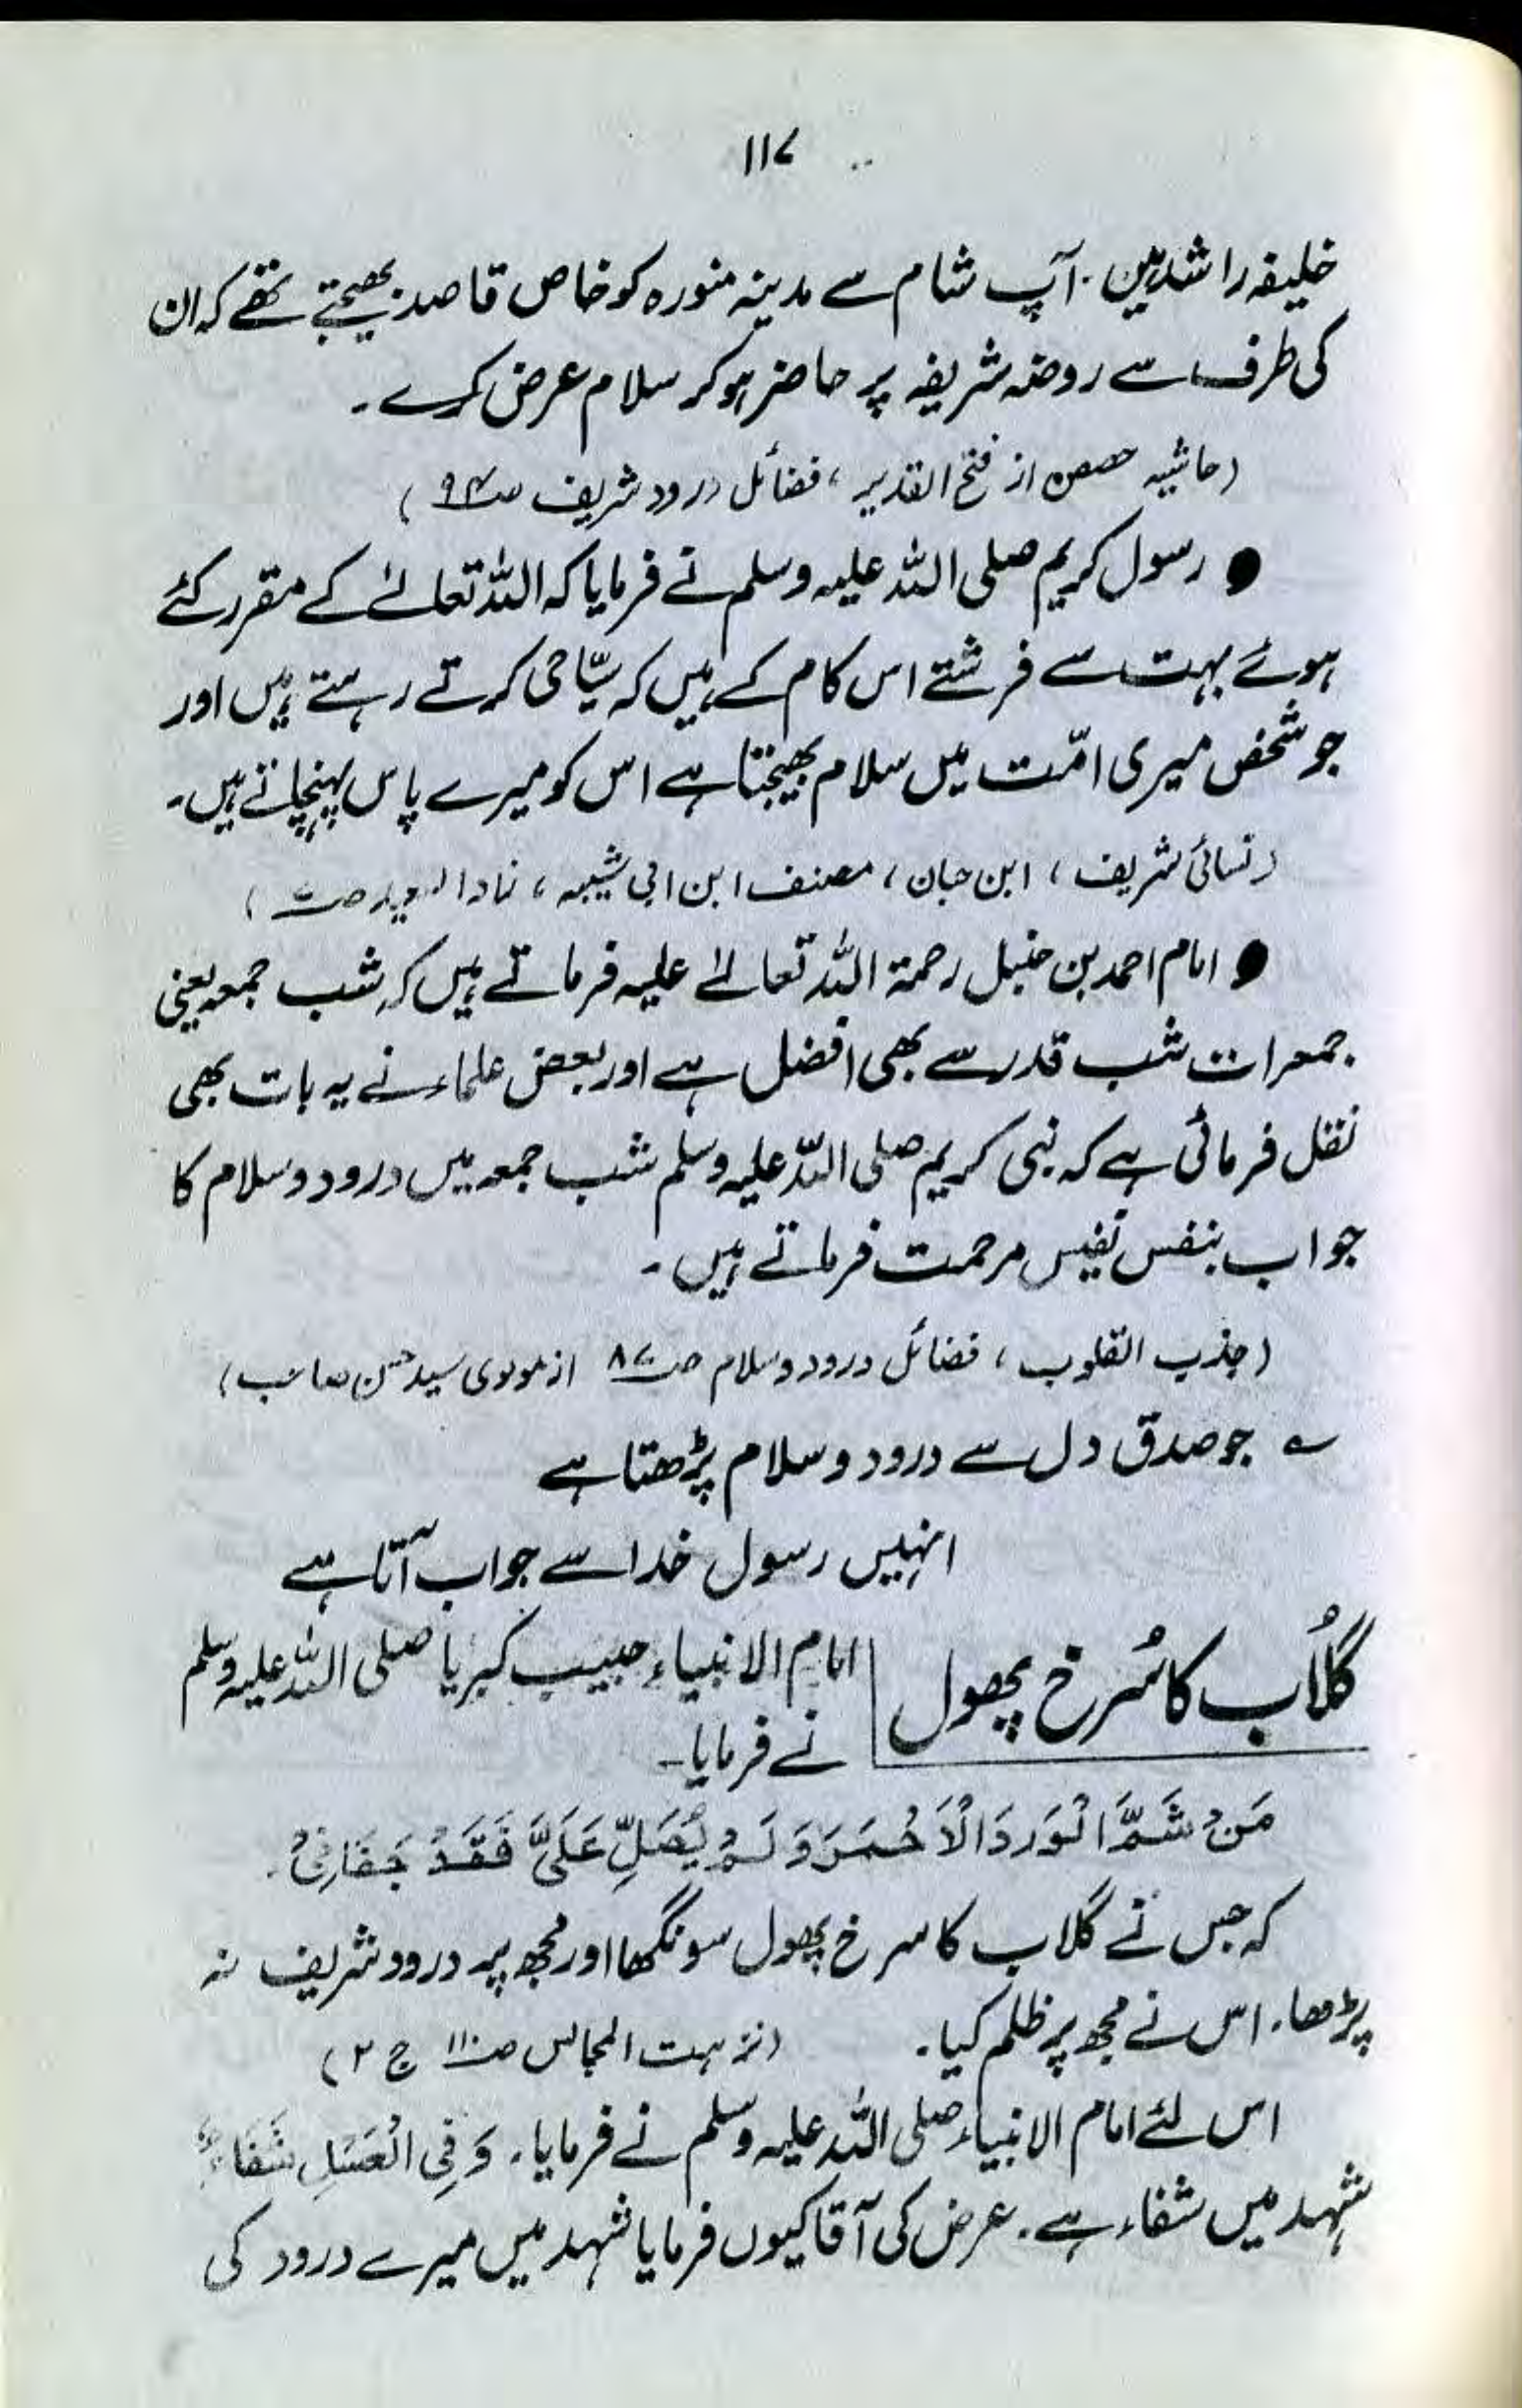 ۱۱۷
خلیفہ راشد ہیں. آپ شام سے مدینہ منورہ کو خاص قاصد بھیجتے تھے کہ ان
کی طرف سے روضہ شریفہ پر حاضر ہو کر سلام عرض کرے۔
(حاشیہ حصن از فتح القدیر، فضائل درود شریف
● رسول کریم صلی اللہ علیہ وسلم نے فرمایا کہ اللہ تعالےٰ کے مقرر کئے
ہوئے بہت سے فرشتے اس کام کے ہیں کہ سیّاحی کرتے رہتے ہیں اور
جو شخص میری امّت میں سلام بھیجتا ہے اس کو میرے پاس پہنچاتے ہیں۔
(نسائی شریف، ابن حبان، مصنف ابن ابی شیبہ،
● امام احمد بن حنبل رحمۃ اللہ تعالےٰ علیہ فرماتے ہیں کہ شب جمعہ یعنی
جمعرات شب قدر سے بھی افضل ہے اور بعض علماء نے یہ بات بھی
نقل فرمائی ہے کہ نبی کریم صلی اللہ علیہ وسلم شب جمعہ میں درود وسلام کا
جواب بنفس نفیس مرحمت فرماتے ہیں۔
(جذب القلوب، فضائل درود وسلام صـ۸۷ از مولوی سید حسن صاحب)
؎ جو صدق دل سے درود وسلام پڑھتا ہے
انہیں رسول خدا سے جواب آتا ہے
گلاُب کا سُرخ پھول
امام الانبیاء حبیب کبریا صلی اللہ علیہ وسلم
نے فرمایا۔
مَنْ شَمَّ الْوَرْدَ الْاَحْمَرَ وَلَمْ یُصَلِّ عَلَیَّ فَقَدْ جَفَانِیْ.
کہ جس نے گلاب کا سرخ پھول سونگھا اور مجھ پر درود شریف نہ
پڑھا۔ اس نے مجھ پر ظلم کیا۔ (نزہت المجالس صـ۱۱۰ ج ۲)
اس لئے امام الانبیاء صلی اللہ علیہ وسلم نے فرمایا۔ وَفِی الْعَسَلِ شِفَاءٌ
شہد میں شفاء ہے. عرض کی آقا کیوں فرمایا شہد میں میرے درود کی